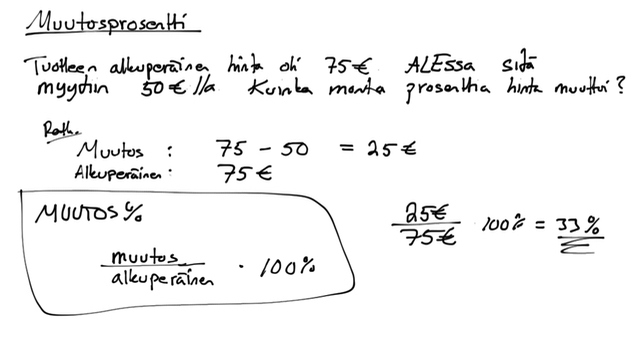 Muutosprosentti
Tuotteen alkuperäinen hinta oli 75€. ALEssa sitä
myytiin 50€:lla. Kuinka monta prosenttia hinta muuttui?
Ratk.
Muutos : 75 - 50 = 25€
Alkuperäinen: 75€
MUUTOS %
muutos
alkuperäinen · 100%
25€
75€ · 100% = 33%